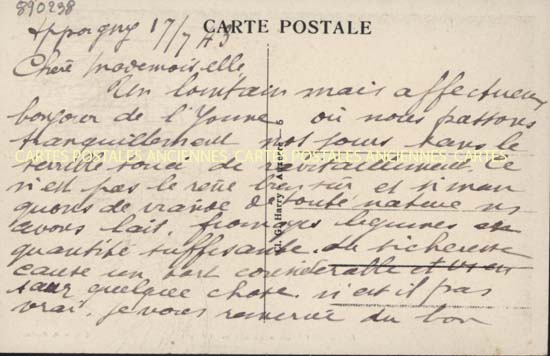 890238
CARTE POSTALE
Appoigny 17/7 43
Chère Mademoiselle,
Un lointain mais affectueux
bonjour de l'Yonne où nous passons
tranquillement nos jours sans le
terrible souci de ravitaillement. Ce
n'est pas le rêve bien sur et si man
quons de viande de toute nature ns
avons lait, fromages légumes en
quantité suffisante. la sécheresse
cause un tort considérable et
quelque chose. n'est il pas
vrai. je vous remercie du bon
CARTES POSTALES ANCIENNES CARTES POSTALES ANCIENNES CARTES